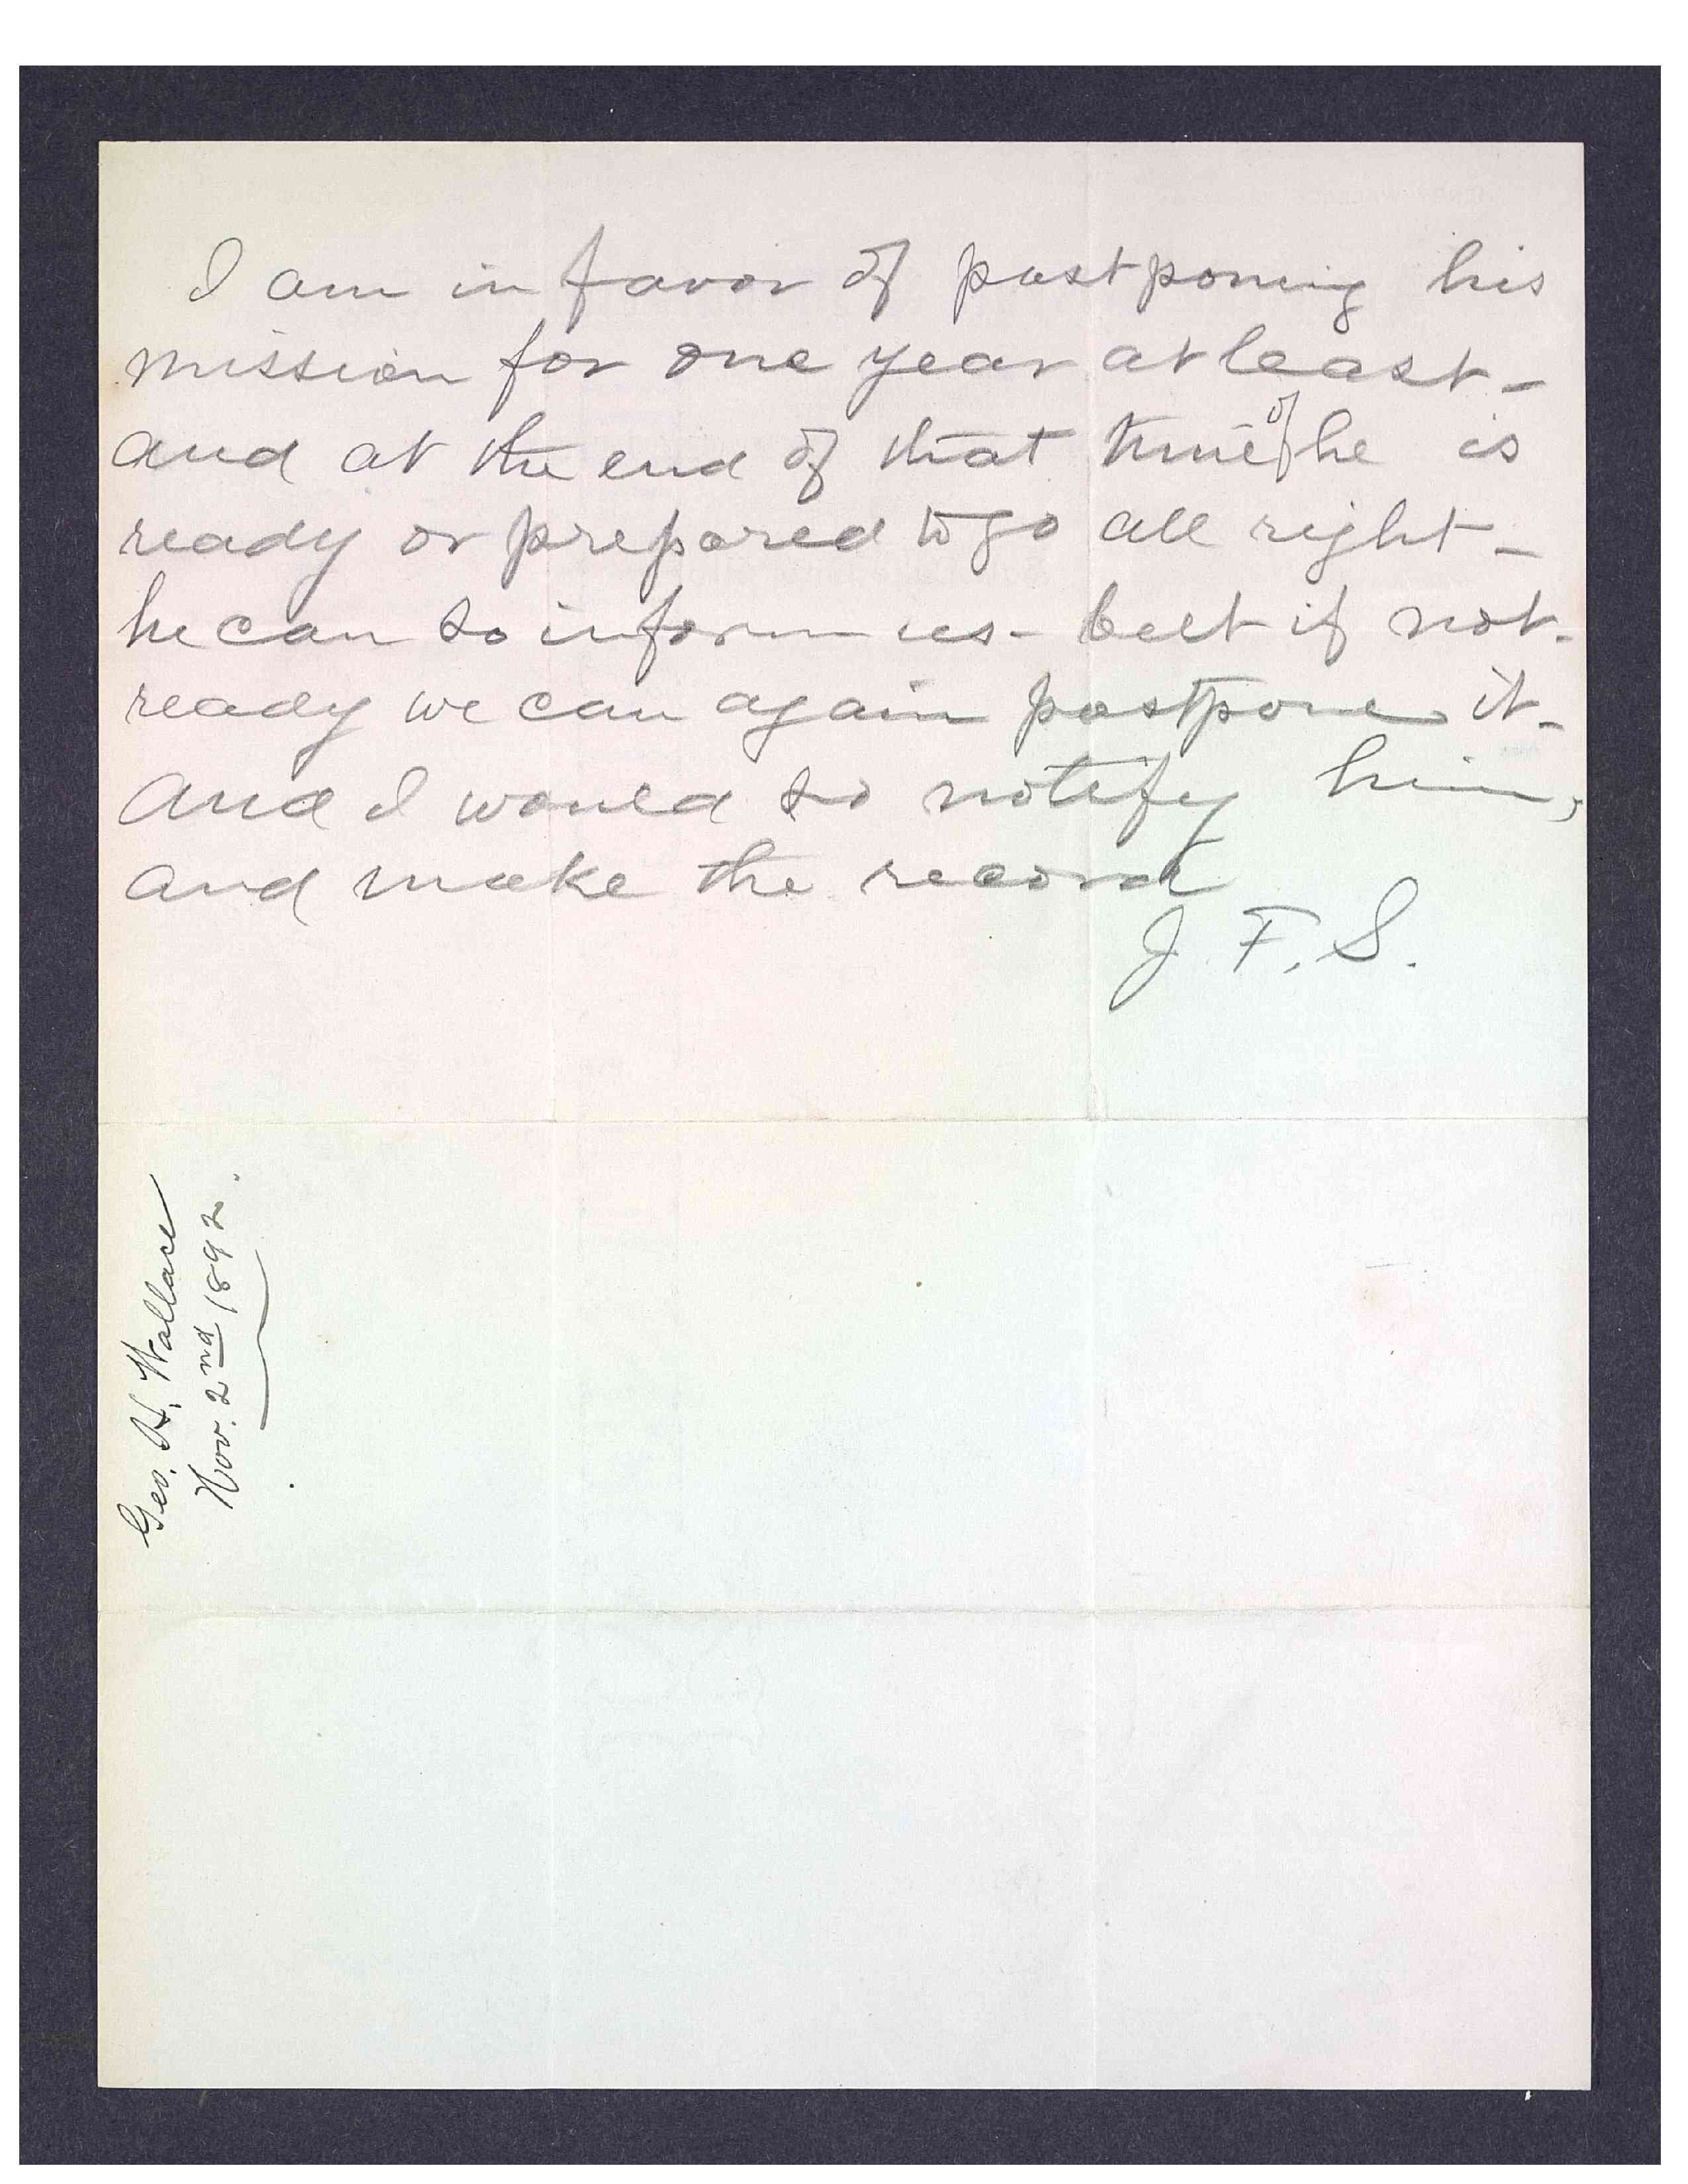 I am in favor of postponing his
mission for one year at least -
and at the end of that time if he is
ready or prepared to go all right -
he can so inform us - but if not
ready we can again postpone it -
And I would so notify him,
and make the record
J. F. S.
Geo. H. Wallace
Nov. 2nd 1892.